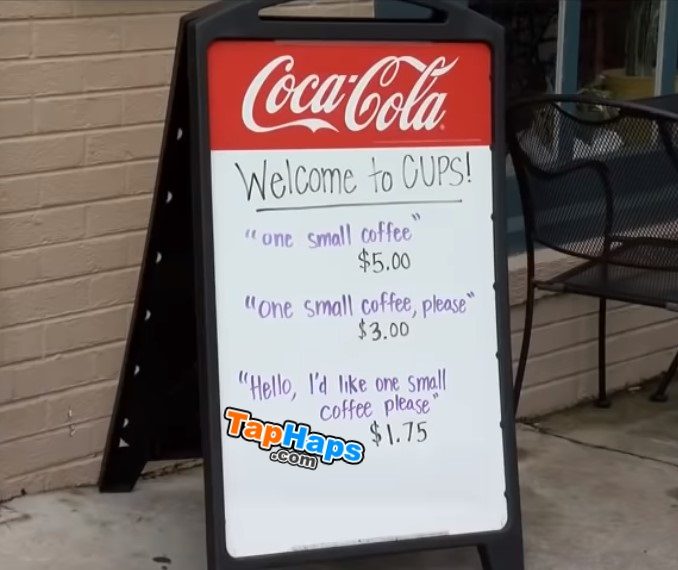 Coca-Cola
Welcome to CUPS!
"one small coffee"
$5.00
"one small coffee, please"
$3.00
"Hello, I'd like one small
coffee please"
$1.75
TapHaps
.com